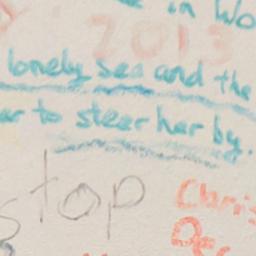 in Wo
2013
lonely sea and the
ar to steer her by.
stop
Chris
Dec